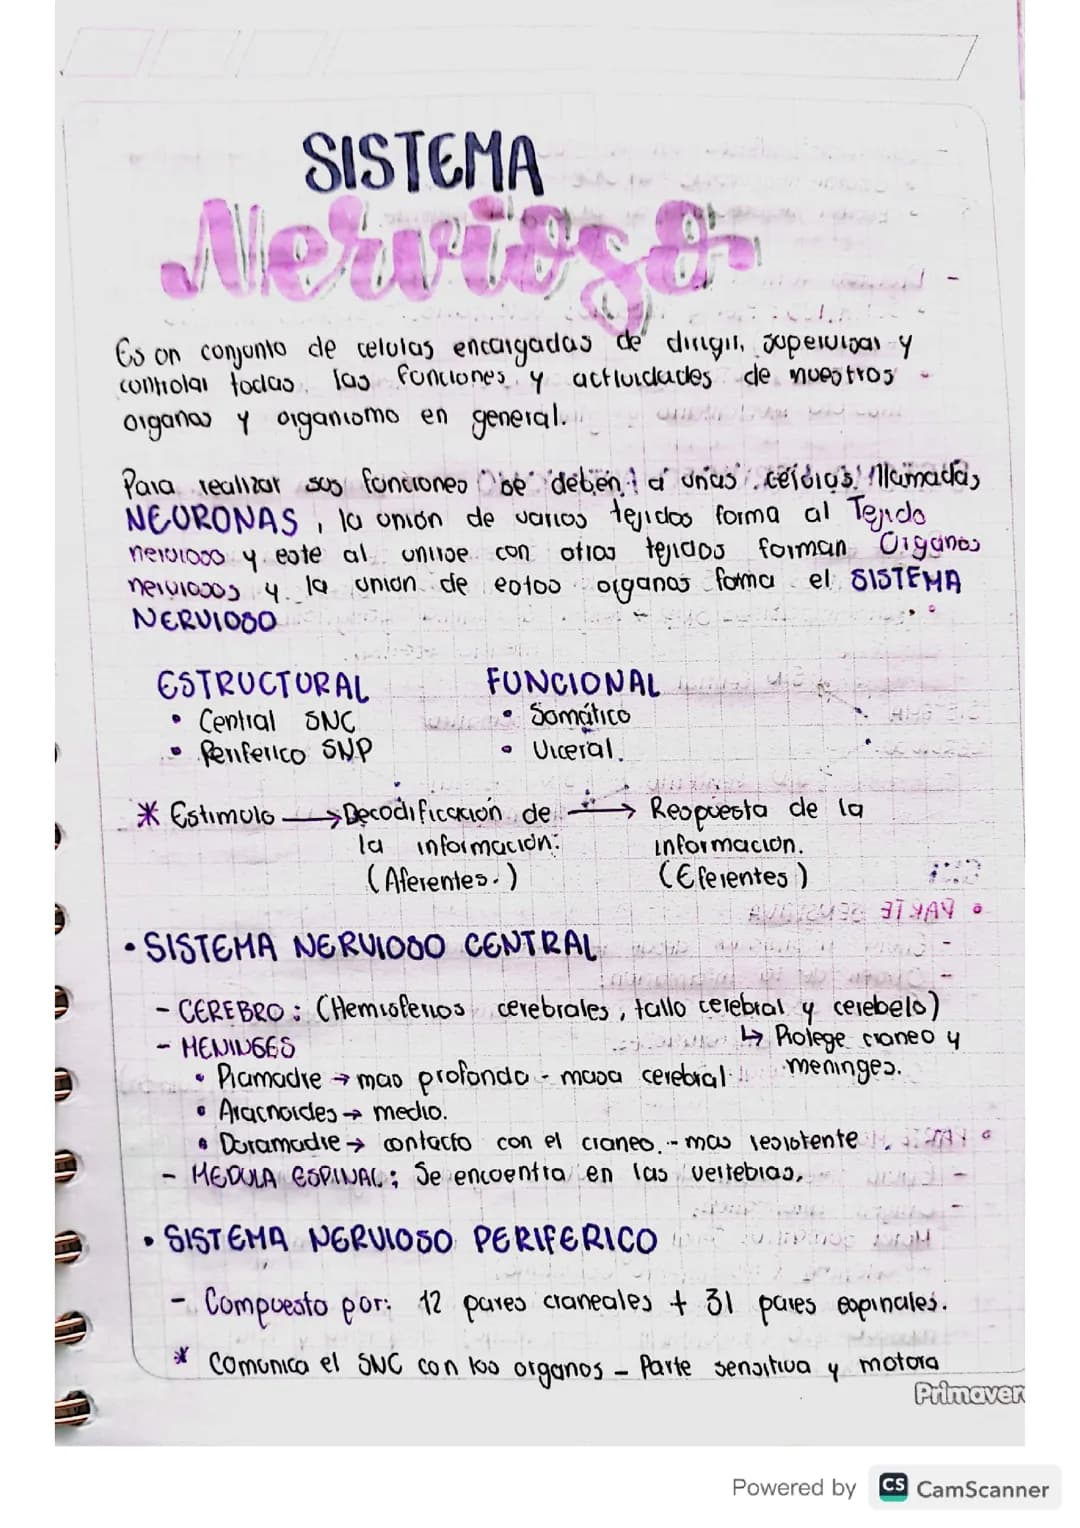 SISTEMA
Nervioso
Es un conjunto de celulas encargadas de dirigir, supervisar y
controlar todas las funciones y actividades de nuestros
organos y organismo en general.
Para realizar sus funciones se deben a unas células llamadas
NEURONAS, la unión de varios tejidos forma al Tejido
nervioso y este al unirse con otros tejidos forman Organos
nerviosos y la union de estos organos forma el SISTEMA
NERVIOSO
ESTRUCTURAL
• Central SNC
• Periferico SNP
FUNCIONAL
• Somático
• Viceral.
* Estimulo → Decodificación de → Respuesta de la
la información: información.
(Aferentes.) (Eferentes)
• SISTEMA NERVIOSO CENTRAL
- CEREBRO: (Hemisferios cerebrales, tallo cerebral y cerebelo)
- MENINGES ↳ Protege craneo y
• Piamadre → mas profunda - masa cerebral meninges.
• Aracnoides → medio.
• Duramadre → contacto con el craneo. - mas resistente
- MEDULA ESPINAL: Se encuentra en las vertebras.
• SISTEMA NERVIOSO PERIFERICO
- Compuesto por: 12 pares craneales + 31 pares espinales.
* Comunica el SNC con los organos - Parte sensitiva y motora
Primaver
Powered by CS CamScanner